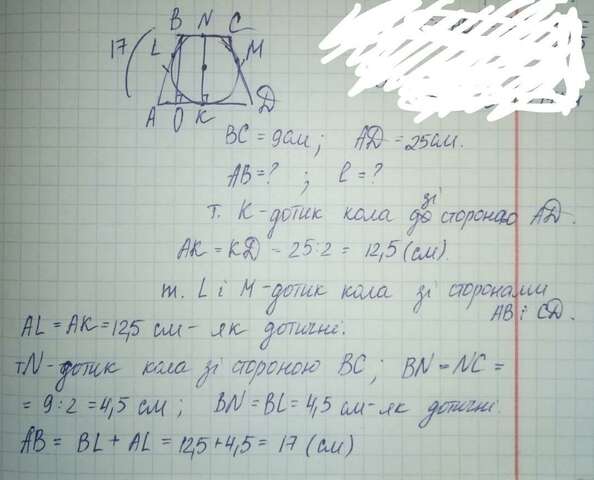 B N C
17 L M
A O K D
BC = 9см; AD = 25см.
AB = ? ; l = ?
зі
т. K - дотик кола до стороною AD.
AK = KD - 25:2 = 12,5 (см).
т. L і M - дотик кола зі сторонами
AB і CD.
AL = AK = 12,5 см - як дотичні.
тN - дотик кола зі стороною BC; BN = NC =
= 9:2 = 4,5 см; BN = BL = 4,5 см - як дотичні.
AB = BL + AL = 12,5 + 4,5 = 17 (см)